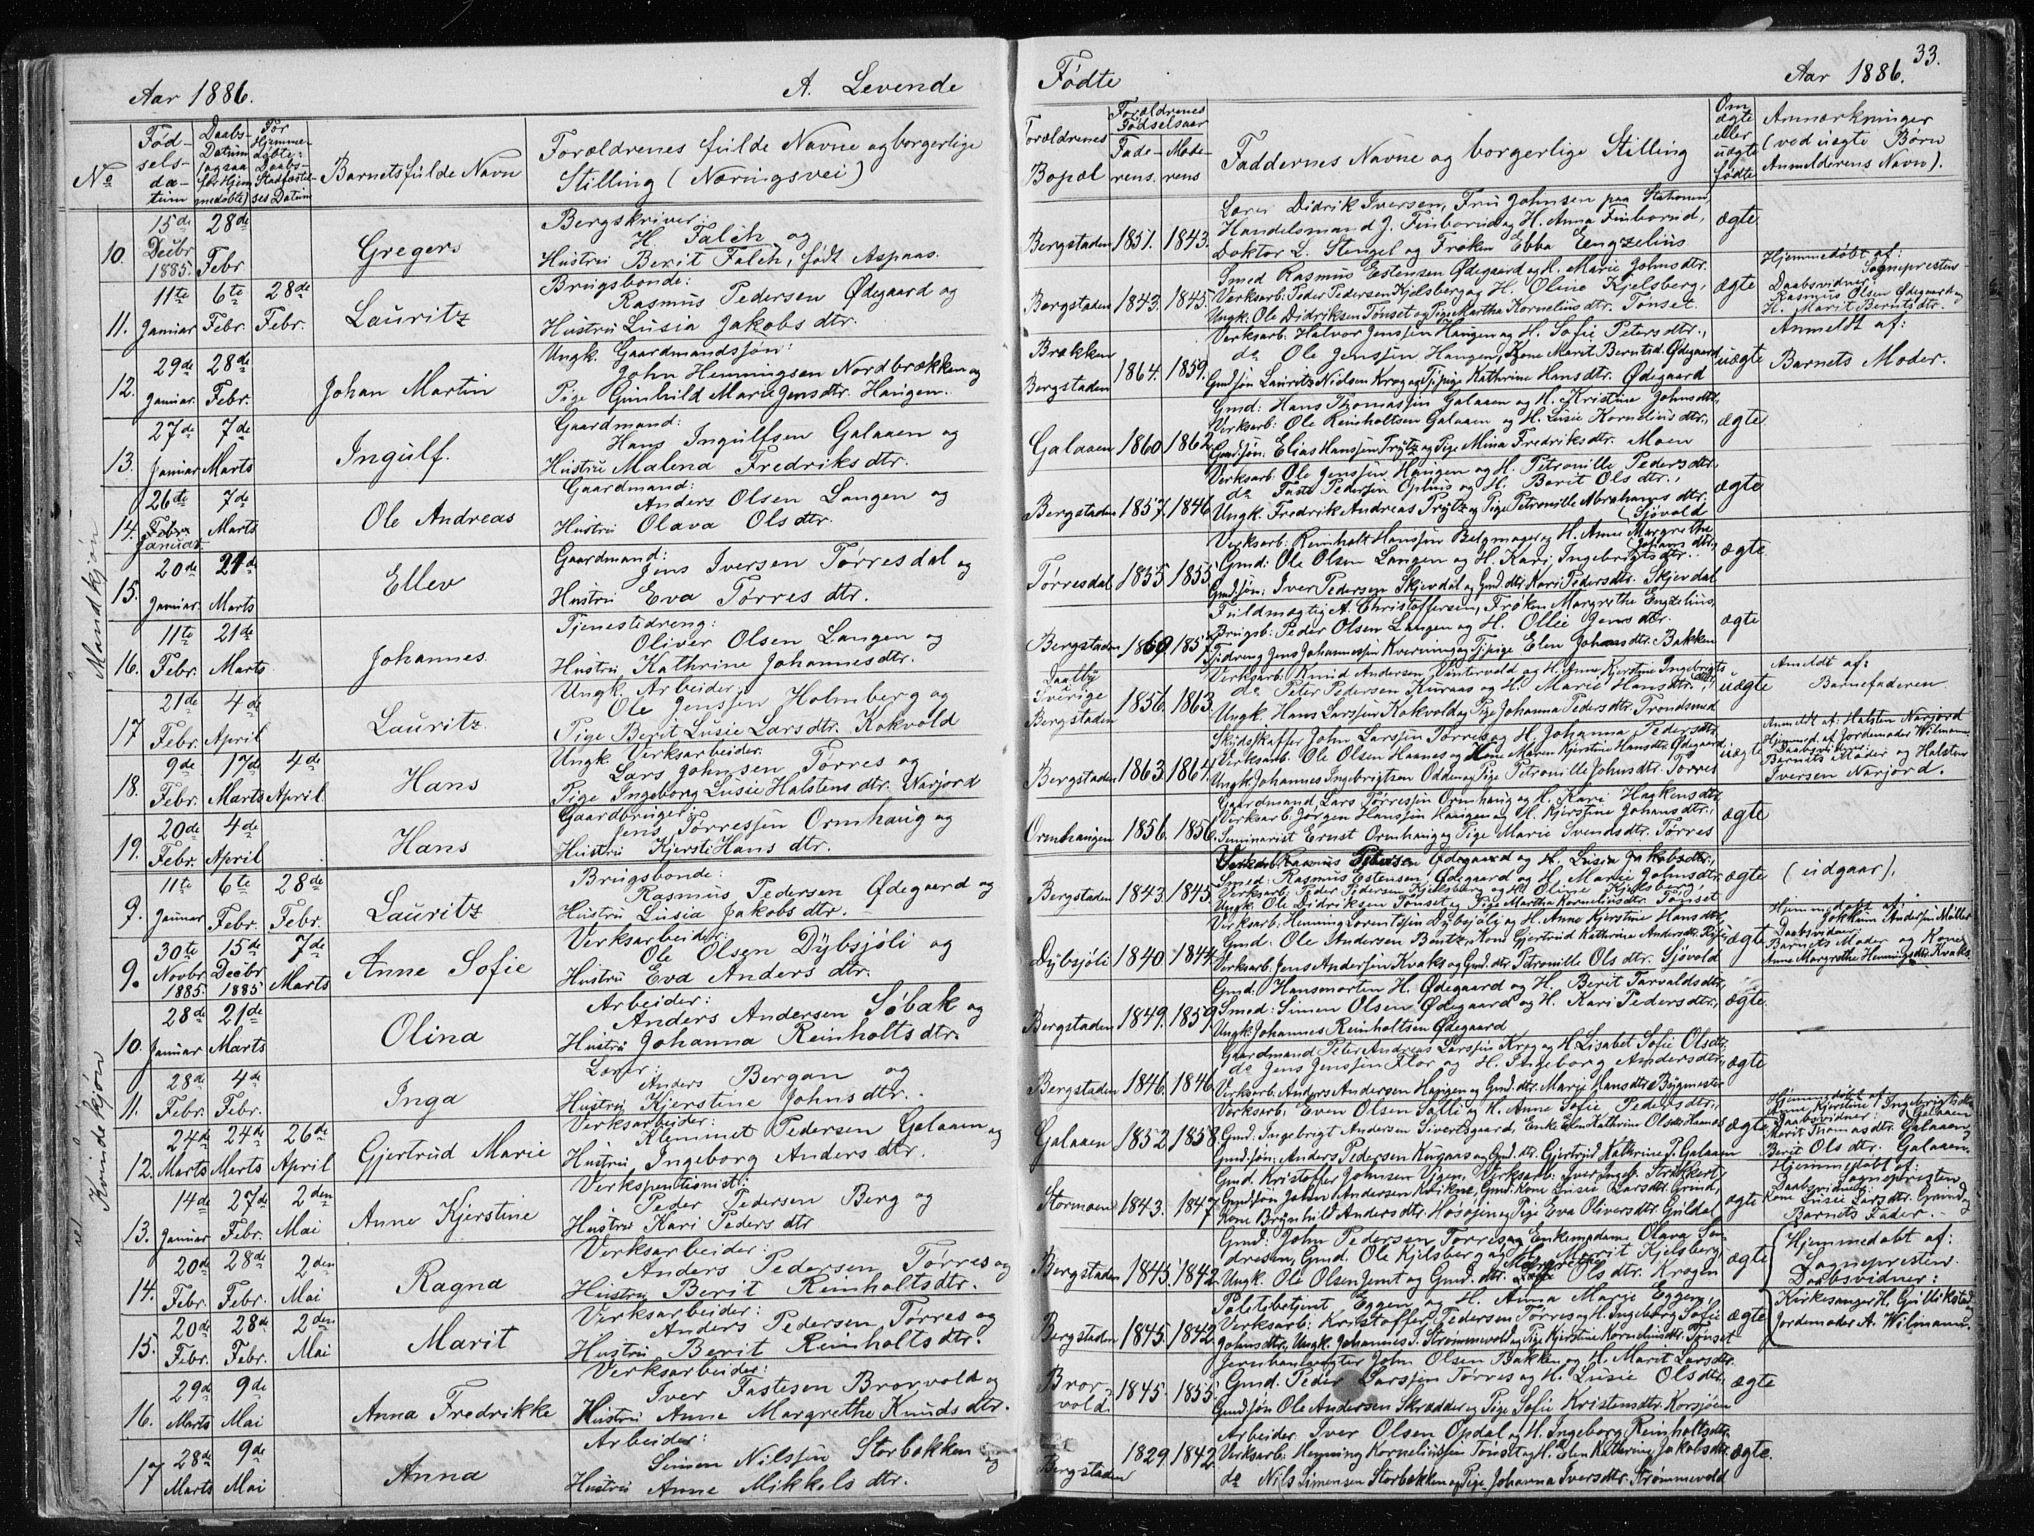 33.
Aar 1886.
A. Levende
Fødte
Aar 1886.
No
Fødselsdatum
Daabs-Datum (ogsaa for Hjemmedøbte)
For Hjemmedøbte: Daabs-Stadfæstelses Datum
Barnets fulde Navn
Forældrenes fulde Navne og borgerlige Stilling (Næringsvei)
Forældrenes Bopæl
Forældrenes Fødselsaar
Faderens. Moderens
Faddernes Navne og borgerlige Stilling
Om ægte eller uægte fødte
Anmærkninger (ved uægte Børn Anmelderens Navn).
Mandkjøn
10. 15de Decbr 1885. 28de Febr Gregers
Bergskriver:
H. Falch og
Hustru Berit Falch, født Aspaas.
Bergstaden 1851. 1843.
Lærer Didrik Iversen, Fru Johnsen paa Stationen,
Handelsmand J. Finborud og H. Anna Finborud,
Doktor L. Stengel og Frøken Ebba Engzelius
ægte
11. 11te Januar 6te Febr. 28de Febr. Lauritz
Brugsbonde:
Rasmus Pedersen Ødegaard og
Hustru Lusia Jakobsdtr.
Bergstaden 1843. 1845.
Smed Rasmus Estensen Ødegaard og H. Marie Johnsdtr.
Verksarb: Peder Pedersen Kjelsberg og H. Oline Kjelsberg,
Ungk. Ole Didriksen Tønset og Pige Martha Kornelius dtr. Tønset.
ægte
Hjemmedøbt af:
Sognepresten
Daabsvidner:
Rasmus Olsen Ødegaard og
H. Marit Berntsdtr.
12. 29de Januar. 28de Febr. Johan Martin
Ungk. Gaardmandssøn:
John Hemmingsen Nordbrækken og
Pige Gunhild Marie Jensdtr. Haugen.
Brækken
Bergstaden 1864. 1859.
Verksarb. Halvor Jenssen Haugen og H. Sofie Petersdtr.,
do Ole Jenssen Haugen, Kone Marit Berntsd. Ødegaard
Gmdsøn Lauritz Nielsen Krog og Tj.pige Kathrine Hansdtr. Ødegaard
uægte
Anmeldt af:
Barnets Moder.
13. 27de Januar 7de Marts Ingulf.
Gaardmand:
Hans Ingulfsen Galaaen og
Hustru Malena Fredriksdtr.
Galaaen 1860 1862
Gmd: Hans Thomassen Galaaen og H. Kristine Johnsdtr
Verksarb: Ole Reinholtsen Galaaen og H. Lusie Kornelius dtr.,
Gmdsøn: Elias Hanssen Trytz og Pige Mina Fredriksdtr. Moen
ægte
14. 26te Januar. 7de Marts Ole Andreas
Gaardmand:
Anders Olsen Langen og
Hustru Olava Olsdtr.
Bergstaden 1857. 1846
Verksarb: Ole Jenssen Haugen og H. Petronille Pedersdtr.
do Faste Pedersen Ophus og H. Berit Olsdtr.,
Ungk. Fredrik Andreas Prytz og Pige Petronille Abrahamsdtr.
(Sjøvold
ægte
15. 20de Januar. 21de Marts Ellev
Gaardmand:
Jens Iversen Tørresdal og
Hustru Eva Tørresdtr.
Tørresdal 1855 1855
Verksarb: Reinholt Hanssen Bergmager og H. Anne Margrethe
Gmd: Ole Olsen Langen og H. Kari Ingebrigtsdtr.
Gmdsøn: Iver Pedersen Skjevdal og Gmd.dtr. Kari Pedersdtr. Skjevdal
ægte
16. 11te Febr. 21de Marts Johannes.
Tjenestedreng:
Oliver Olsen Langen og
Hustru Kathrine Johannesdtr.
Bergstaden 1860 1857
Fuldmægtig A. Christoffersen, Frøken Margrethe Engzelius,
Brugsb: Peder Olsen Langen og H. Ollie Jensdtr.
Tj.dreng Jens Johannessen Kverning og Tj.pige Elen Johansdtr. Bakken
ægte
17 21de Febr. 4de April Lauritz.
Ungk. Arbeider:
Ole Jenssen Holmberg og
Pige Berit Lusie Larsdtr. Kokvold
Daalby
Sverige
Bergstaden 1856. 1863.
Verksarb: Knud Andersen Vintervold og H. Anne Kjerstine Ingebrigtsdtr
do Peter Pedersen Kuraas og H. Marie Hansdtr.
Ungk. Hans Larssen Kokvold og Pige Johanna Pedersdtr. Trondsmed
uægte
Anmeldt af:
Barnefaderen
18. 9de Febr. 17de Marts 4de April. Hans
Ungk. Verksarbeider.
Lars Johnsen Tørres og
Pige Ingeborg Lusie Halstensdtr. Narjord
Bergstaden 1863. 1864.
Skydsskaffer John Larssen Tørres og H. Johanna Pedersdtr.
Verksarb: Ole Olsen Haanes og Kone Maren Kjerstine Hansdtr. Ødegaard
Ungk. Johannes Ingebrigtsen Odden og Pige Petronille Johnsdtr. Tørres
uægte
Anmeldt af: Halsten Narjord
Hjemmed. af Jordemoder Wilmann
Daabsvidner:
Barnets Moder og Halsten
Iversen Narjord.
19. 20de Febr. 4de April Hans
Gaardbruger:
Jens Tørressen Ormhaug og
Hustru Kjersti Hansdtr.
Ormhaugen 1856. 1856.
Gaardmand Lars Tørressen Ormhaug og H. Kari Haakensdtr.
Verksarb: Jørgen Hanssen Haugen og H. Kjerstine Johansdtr.,
Seminarist Ernst Ormhaug og Pige Marie Svendsdtr. Tørres
ægte
9. 11te Januar 6te Febr. 28de Febr. Lauritz
Brugsbonde:
Rasmus Pedersen Ødegaard og
Hustru Lusia Jakobsdtr.
Bergstaden 1843. 1845
Smed: Rasmus Estensen Ødegaard og H. Marie Johnsdtr.
Verksarb. Peder Pedersen Kjelsberg og H. Oline Kjelsberg,
Ungk. Ole Didriksen Tønset og Pige Martha Korneliusdtr. Tønset
ægte
(udgaar).
Kvindekjøn
9. 30te Novbr. 1885. 15de Decbr 1885 7de Marts Anne Sofie
Verksarbeider:
Ole Olsen Dybsjøli og
Hustru Eva Andersdtr.
Dybsjøli 1840 1844.
Verksarb. Henning Lorentssen Dybsjøli og H. Anne Kjerstine Hansdtr.
Gmd: Ole Andersen Bentz, Kone Gjertrud Kathrine Andersdtr.
Verksarb: Jens Anderssen Kvaks og Gmd.dtr. Petronille Olsdtr. Sjøvold
ægte
Hjemmedøbt af:
Jokkum Anderssen Møller
Daabsvidner:
Barnets Moder og Kone
Anne Margrethe Henningsdtr. Kvaks
10. 28de Januar 21de Marts Olina
Arbeider:
Anders Andersen Søbak og
Hustru Johanna Reinholtsdtr.
Bergstaden 1849. 1859.
Gmd. Hansmorten H. Ødegaard og H. Berit Tarvaldsdtr.,
Smed: Simen Olsen Ødegaard og H. Kari Pedersdtr.,
Ungk: Johannes Reinholtsen Ødegaard
ægte
11. 28de Febr. 4de Febr. Inga
Lærer:
Anders Bergan og
Hustru Kjerstine Johnsdtr.
Bergstaden 1846. 1846.
Gaardmand Peter Andreas Larssen Krog og H. Lisabet Sofie Olsdtr,
do Jens Jenssen Flor og H. Ingeborg Andersdtr,
Verksarb: Anders Andersen Haugen og Gmd.dtr. Marie Hansdtr. Bygmester
ægte
12. 24de Marts 24de Marts 26de April Gjertrud Marie
Verksarbeider:
Klemmet Pedersen Galaaen og
Hustru Ingeborg Andersdtr.
Galaaen 1852 1858.
Verksarb. Even Olsen Solli og H. Anne Sofie Pedersdtr.,
Gmd. Ingebrigt Andersen Sivertsgaard, Enke Elen Kathrine Olsdtr. Haanes
Gmdsøn: Anders Pedersen Kuraas og Gmd. dtr. Gjertrud Kathrine P. Galaaen
ægte
Hjemmedøbt af
Anne Kjerstine Ingebrigtsdtr
Daabsvidner: Galaaen
Marit Thomasdtr. Galaaen,
Berit Olsdtr. Galaaen.
13. 14de Januar. 27de Febr. 2den Mai Anne Kjerstine
Verkspentionist:
Peder Pedersen Berg og
Hustru Kari Pedersdtr
Stormoen 1843. 1847.
Gmd. Kristoffer Johnsen Vigen, Verksarb: Iver Inges. Trakkert,
Gmdsøn Johan Andersen Kvikne, Gmd. Kone Lusie Larsdtr. Grind,
Kone Brynhild Andersdtr. Hosøien og Pige Eva Oliversdtr. Guldal
ægte
Hjemmedøbt af:
Sognepresten
Daabsvidner:
Kone Lusie Larsdtr. Grind og
Barnets Fader.
14. 20de Febr. 28de Febr. 2den Mai Ragna
Verksarbeider:
Anders Pedersen Tørres og
Hustru Berit Reinholtsdtr.
Bergstaden 1845. 1842
Gmd: John Pedersen Tørres og Enkemadame Olava Sondresen,
Gmd. Ole Kjelsberg og H. Marrit Kjelsberg
Ungk. Ole Olsen Jemt og Gmd. dtr. Margrethe Olsdtr. Krogen
ægte
Hjemmedøbt af:
Sognepresten
Daabsvidner:
Kirkesanger H. Gullikstad
Jordemoder A. Wilmann.
15. 20de Febr. 28de Febr. 2den Mai Marit
Verksarbeider:
Anders Pedersen Tørres og
Hustru Berit Reinholtsdtr.
Bergstaden 1845. 1842
Politibetjent Eggen og H. Anna Marie Eggen,
Verksarb: Kristoffer Pedersen Tørres og H. Ingeborg Sofie
Johnsdtr., Ungk. Johannes J. Strømmevold og Pige Kjerstine Korneliusdtr. Tønset
ægte
16. 29de Marts 9de Mai Anna Fredrikke
Verksarbeider:
Iver Fastesen Brorvold og
Hustru Anne Margrethe Knudsdtr.
Brorvold. 1845. 1855.
Jernbanevogter John Olsen Bakken og H. Marit Larsdtr.
Gmd. Peder Larssen Tørres og H. Lusie Olsdtr,
Gmdsøn Ole Andersen Skrædder og Pige Sofie Kristensdtr. Korsjøen
ægte
17 28de Marts 9de Mai Anna
Arbeider:
Simen Nilssen Storbekken og
Hustru Anne Mikkelsdtr.
Bergstaden 1829. 1842.
Arbeider Iver Olsen Opdal og H. Ingeborg Reinholtsdtr.
Verksarb: Henning Korneliussen Tønset og H. Elen Kathrine Jakobsdtr.
do Nils Simensen Storbekken og Pige Johanna Iversdtr. Strømmevold
ægte.